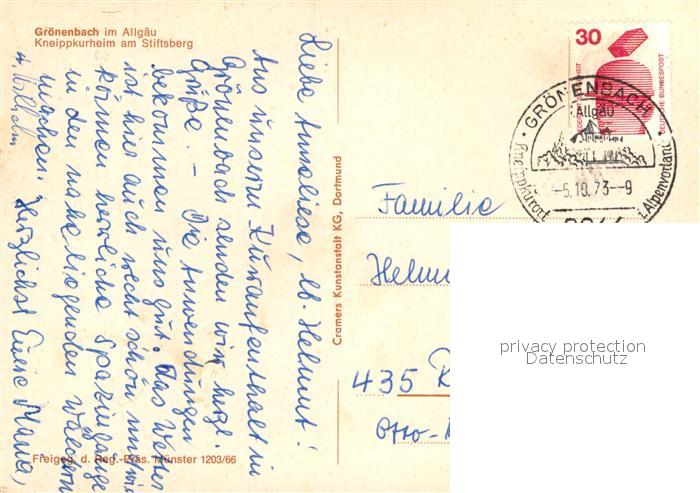 Grönenbach im Allgäu
Kneippkurheim am Stiftsberg
Liebe Anneliese, lb. Helmut!
Aus unserm Kuraufenthalt in
Grönenbach senden wir herzl.
Grüße. - Die Anwendungen
bekommen uns gut. Das Wetter
ist hier auch recht schön und wir
können herrliche Spaziergänge
in den naheliegenden Wäldern
machen. Herzlichst Eure Mama,
u. Wilhelm
Freigeg. d. Reg.-Präs. Münster 1203/66
Cramers Kunstanstalt KG, Dortmund
30
DEUTSCHE BUNDESPOST
GRÖNENBACH
Allgäu
-5.10.73--9
Kneippkurort
Alpenvorland
Familie
Helm
435 R
Otto-
privacy protection
Datenschutz